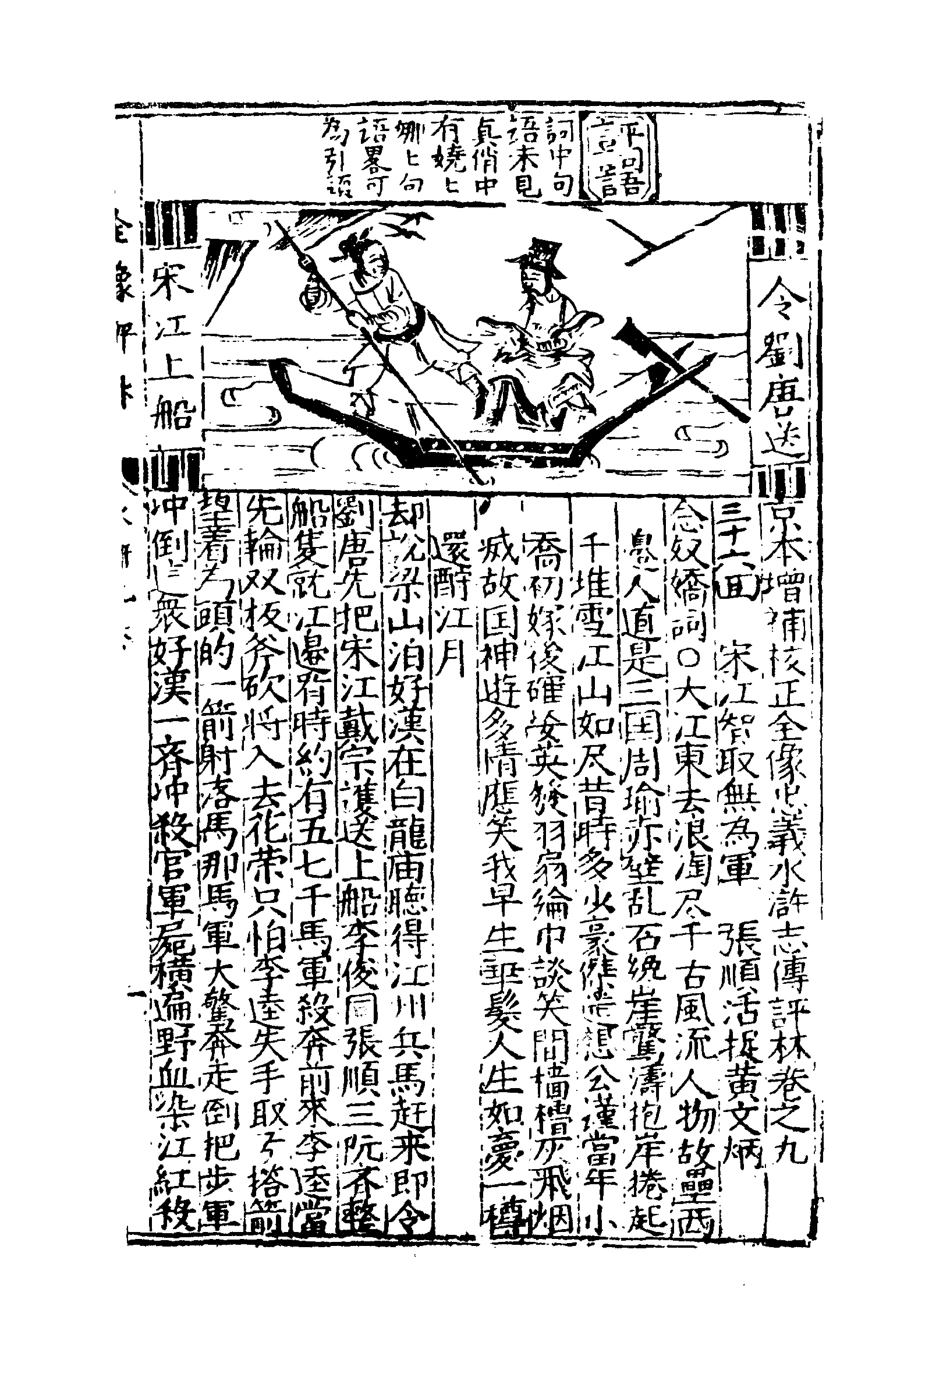 評詞句語
詞中句
語未見
真俏中
有嬈上
娜上句
語畧可
為引語
令劉唐送
宋江上船
京本增補校正全像忠義水滸志傳評林卷之九
三十六囬　宋江智取無為軍　張順活捉黃文炳
念奴嬌詞〇大江東去浪淘尽千古風流人物故壘西
邊人道是三囯周瑜赤壁乱石繞崖驚濤抱岸捲起
千堆雪江山如尺昔時多少豪傑遥想公瑾當年小
喬初嫁後確姿英發羽扇綸巾談笑間檣櫓灰飛烟
滅故国神遊多情應笑我早生華髮人生如夢一樽
還酹江月
却說梁山泊好漢在白龍庙聴得江州兵馬赶来即令
劉唐先把宋江戴宗護送上船李俊同張順三阮齐整
船隻就江邉看時約有五七千馬軍殺奔前來李逵當
先輪双板斧砍將入去花荣只怕李逵失手取弓搭箭
望着为頭的一箭射落馬那馬軍大驚奔走倒把步軍
冲倒这衆好漢一齊冲殺官軍屍橫遍野血染江紅殺
全像評林
一